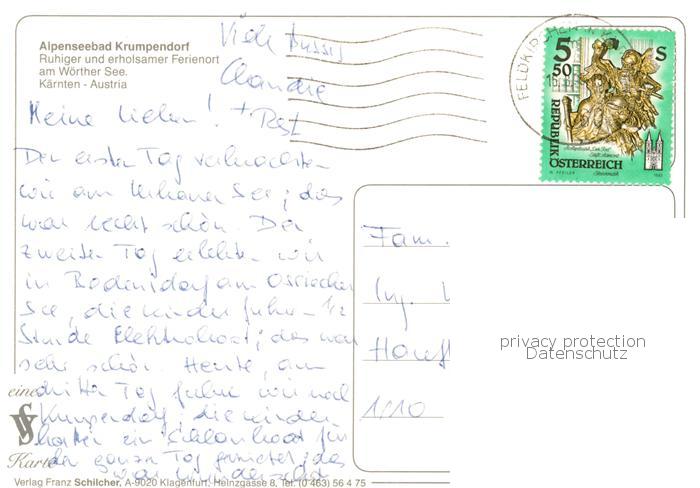 Alpenseebad Krumpendorf
Ruhiger und erholsamer Ferienort
am Wörther See.
Kärnten - Austria
Viele Bussis
Claudia
+ Rest
Meine Lieben!
Den ersten Tag verbrachten
wir am See; das
war recht schön. Den
zweiten Tag erlebten wir
in Bodensdorf am Ossiacher
See, die Kinder fuhren 1/2
Stunde Elektroboot; das war
sehr schön. Heute, am
dritten Tag fuhren wir nach
Krumpendorf, die Kinder
hatten ein Schlauchboot für
den ganzen Tag gemietet; das
war wunderschön
eine
Karte
Verlag Franz Schilcher, A-9020 Klagenfurt, Heinzgasse 8, Tel. (0 463) 56 4 75
FELDKIRCHEN
5 50 S
REPUBLIK
ÖSTERREICH
Fam.
Ing.
1110
privacy protection
Datenschutz